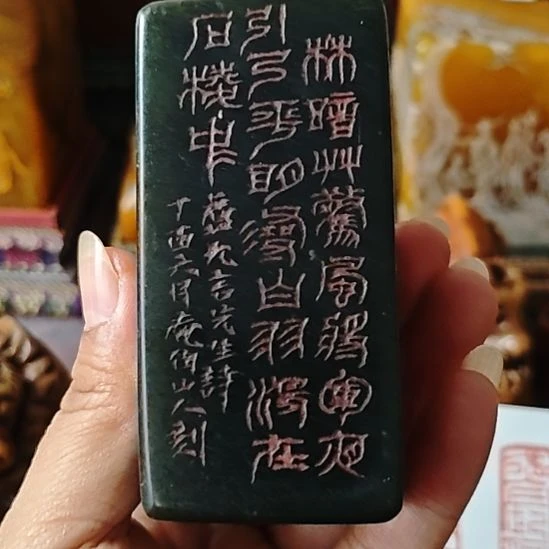 林暗艸驚風將軍夜
引弓平明尋白羽沒在
石棱中
盧允言先生詩
丁酉六月山人刻